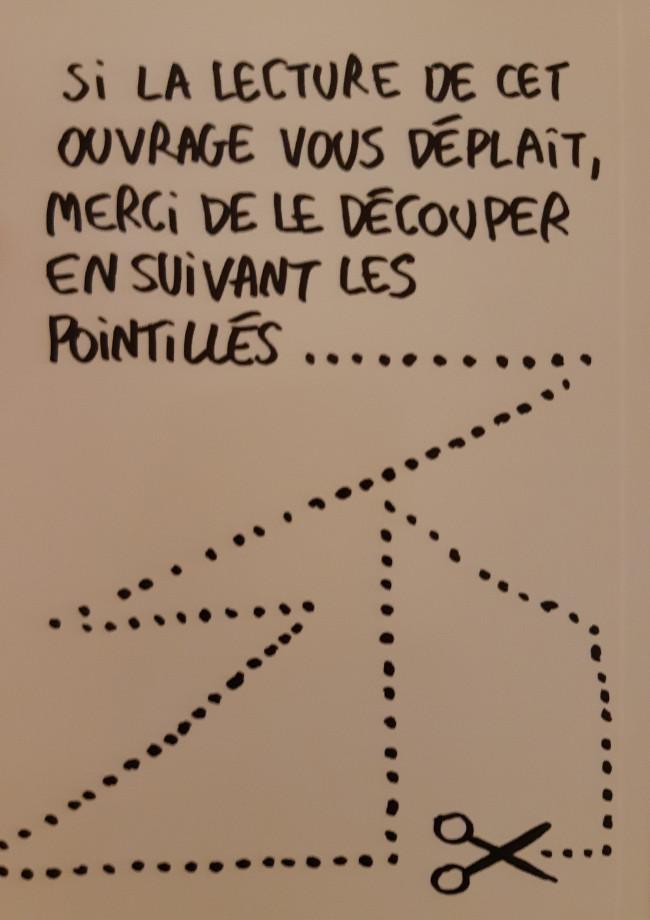 Si LA LECTURE DE CET
OUVRAGE VOUS DÉPLAîT,
MERCi DE LE DÉCOUPER
EN SUiVANT LES
POiNTiLLÉS ..........